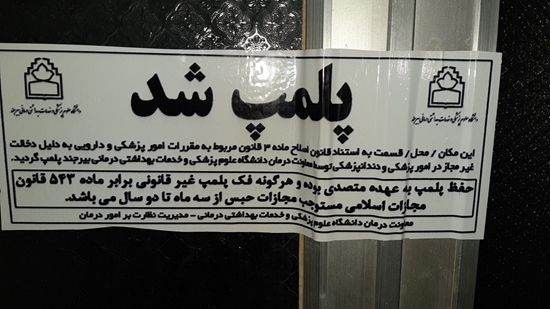 پلمپ شد
دانشگاه علوم پزشکی و خدمات بهداشتی درمانی بیرجند
دانشگاه علوم پزشکی و خدمات بهداشتی درمانی بیرجند
این مکان / محل / قسمت به استناد قانون اصلاح ماده ۳ قانون مربوط به مقررات امور پزشکی و دارویی به دلیل دخالت
غیر مجاز در امور پزشکی و دندانپزشکی توسط معاونت درمان دانشگاه علوم پزشکی و خدمات بهداشتی درمانی بیرجند پلمپ گردید.
حفظ پلمپ به عهده متصدی بوده و هرگونه فک پلمپ غیر قانونی برابر ماده ۵۴۳ قانون
مجازات اسلامی مستوجب مجازات حبس از سه ماه تا دو سال می باشد.
معاونت درمان دانشگاه علوم پزشکی و خدمات بهداشتی درمانی - مدیریت نظارت بر امور درمان